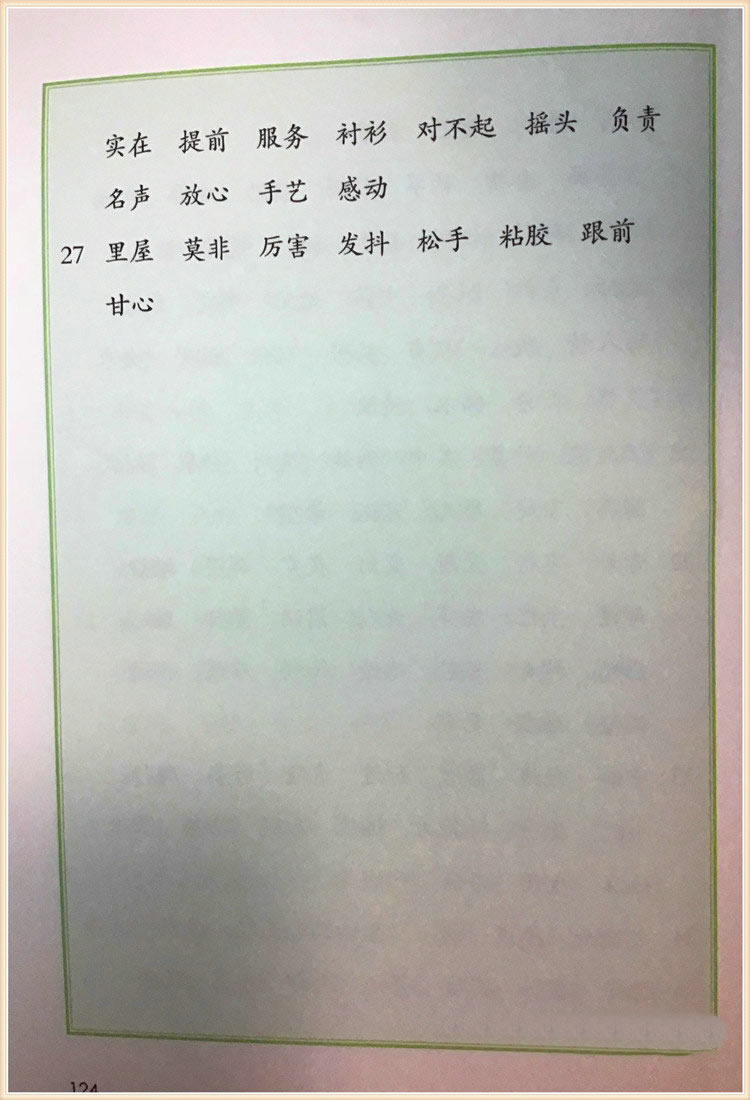 实在 提前 服务 衬衫 对不起 摇头 负责
名声 放心 手艺 感动
27 里屋 莫非 厉害 发抖 松手 粘胶 跟前
甘心
124